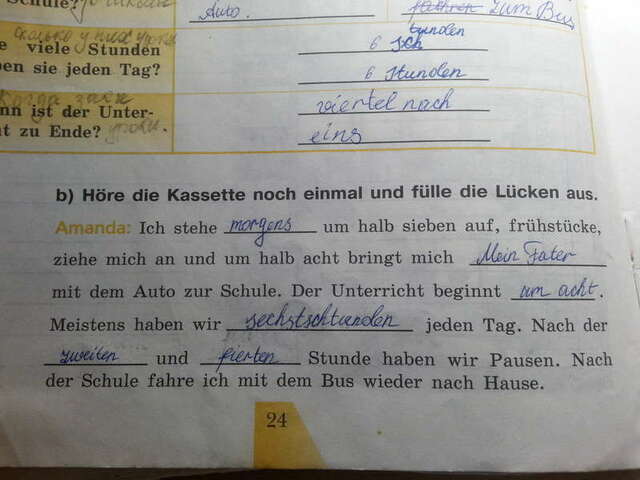 Schule?
Auto.
zum Bus
e viele Stunden
en sie jeden Tag?
6
6 Stunden
nn ist der Unter-
t zu Ende? уроки.
viertel nach
eins
b) Höre die Kassette noch einmal und fülle die Lücken aus.
Amanda: Ich stehe morgens um halb sieben auf, frühstücke,
ziehe mich an und um halb acht bringt mich Mein Fater
mit dem Auto zur Schule. Der Unterricht beginnt um acht.
Meistens haben wir sechstschtunden jeden Tag. Nach der
zweiten und fierten Stunde haben wir Pausen. Nach
der Schule fahre ich mit dem Bus wieder nach Hause.
24